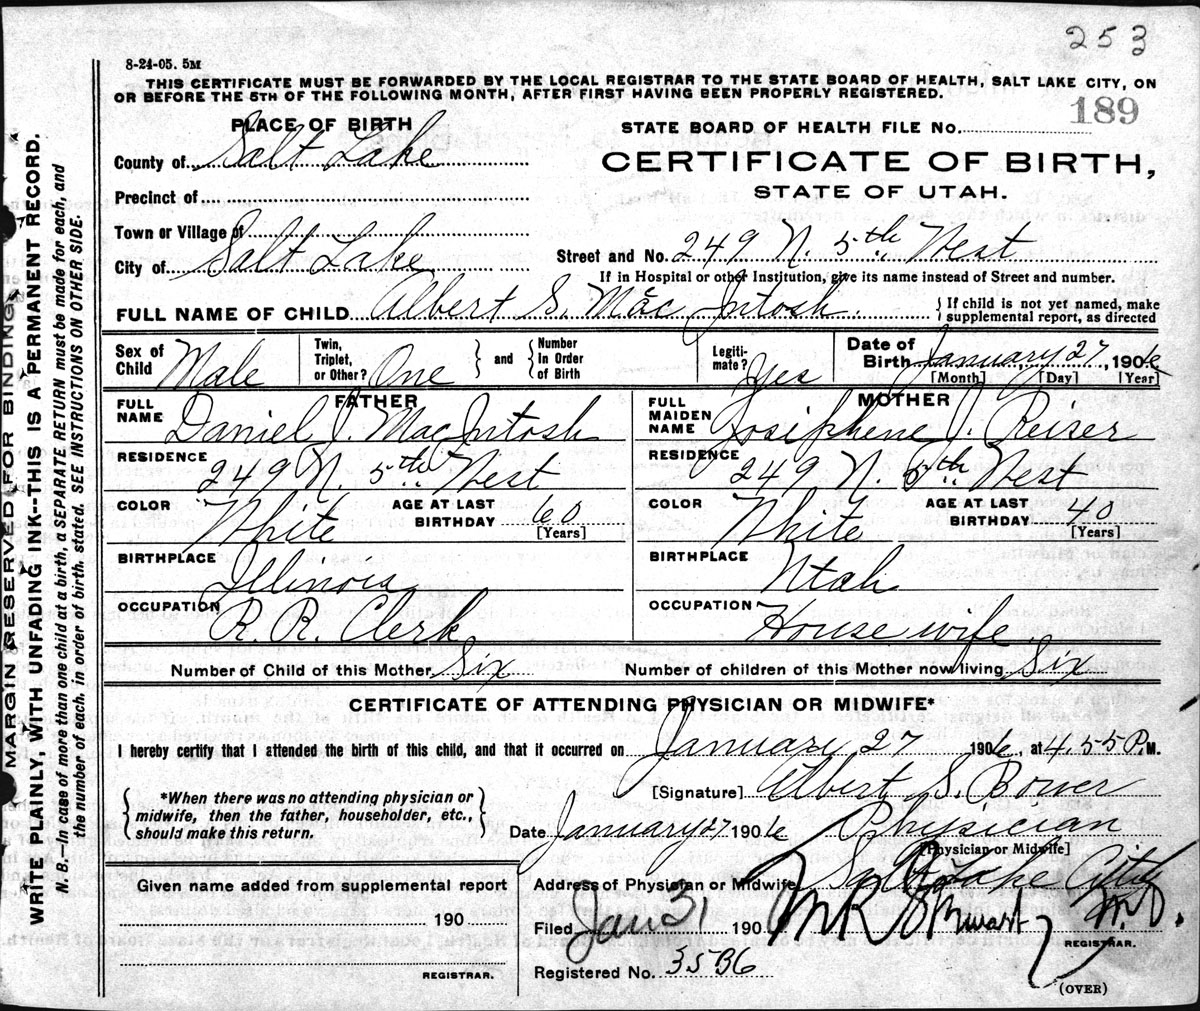 253
8-24-05. 5M
THIS CERTIFICATE MUST BE FORWARDED BY THE LOCAL REGISTRAR TO THE STATE BOARD OF HEALTH, SALT LAKE CITY, ON
OR BEFORE THE 5TH OF THE FOLLOWING MONTH, AFTER FIRST HAVING BEEN PROPERLY REGISTERED.
PLACE OF BIRTH
STATE BOARD OF HEALTH FILE No. 189
County of Salt Lake
CERTIFICATE OF BIRTH,
STATE OF UTAH.
Precinct of
Town or Village of
City of Salt Lake
Street and No. 249 N. 5th West
If in Hospital or other Institution, give its name instead of Street and number.
FULL NAME OF CHILD Albert S. Mac Intosh
{ If child is not yet named, make
supplemental report, as directed
Sex of Child Male
Twin, Triplet, or Other? One } and { Number In Order of Birth
Legiti- mate? Yes
Date of Birth January 27, 1906
[Month] [Day] [Year]
FATHER
FULL NAME Daniel J. MacIntosh
RESIDENCE 249 N. 5th West
COLOR White AGE AT LAST BIRTHDAY 60 [Years]
BIRTHPLACE Illinois
OCCUPATION R. R. Clerk
MOTHER
FULL MAIDEN NAME Josiphene J. Reiser
RESIDENCE 249 N. 5th West
COLOR White AGE AT LAST BIRTHDAY 40 [Years]
BIRTHPLACE Utah
OCCUPATION House wife
Number of Child of this Mother Six Number of children of this Mother now living Six
CERTIFICATE OF ATTENDING PHYSICIAN OR MIDWIFE*
I hereby certify that I attended the birth of this child, and that it occurred on January 27 1906, at 4.55 P.M.
{ *When there was no attending physician or
midwife, then the father, householder, etc.,
should make this return. }
[Signature] Albert S. Bower
Date January 27 1906 Physician
[Physician or Midwife]
Given name added from supplemental report
190
REGISTRAR.
Address of Physician or Midwife Salt Lake City
Filed Jan 31 190 M.D.
REGISTRAR.
Registered No. 3536
(OVER)
MARGIN RESERVED FOR BINDING
WRITE PLAINLY, WITH UNFADING INK--THIS IS A PERMANENT RECORD.
N. B.--In case of more than one child at a birth, a SEPARATE RETURN must be made for each, and
the number of each, in order of birth, stated. SEE INSTRUCTIONS ON OTHER SIDE.